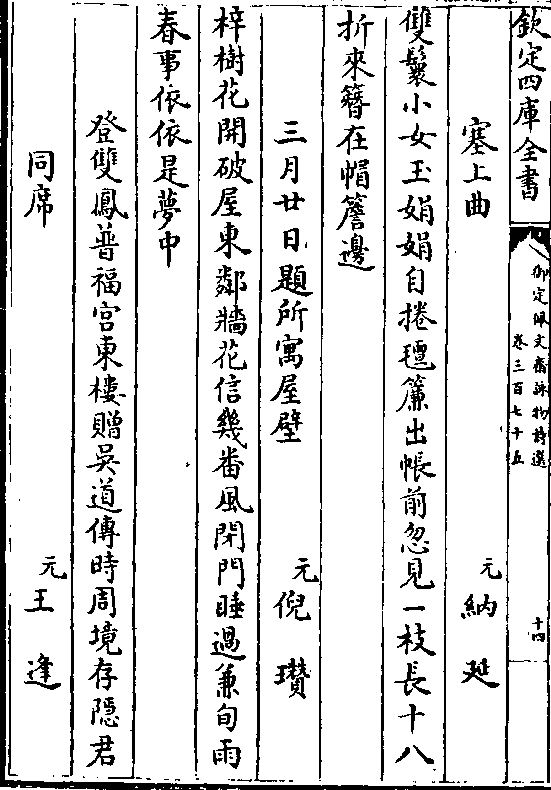 欽定四庫全書
御定佩文齋詠物詩選
卷三百七十五
十四
塞上曲
元納延
雙鬟小女玉娟娟自捲氊簾出帳前忽見一枝長十八
折來簪在帽簷邊
三月廿日題所寓屋壁
元倪瓚
梓樹花開破屋東鄰牆花信幾番風閉門睡過兼旬雨
春事依依是夢中
登雙鳳普福宮東樓贈吳道傳時周境存隱君
同席
元王逢